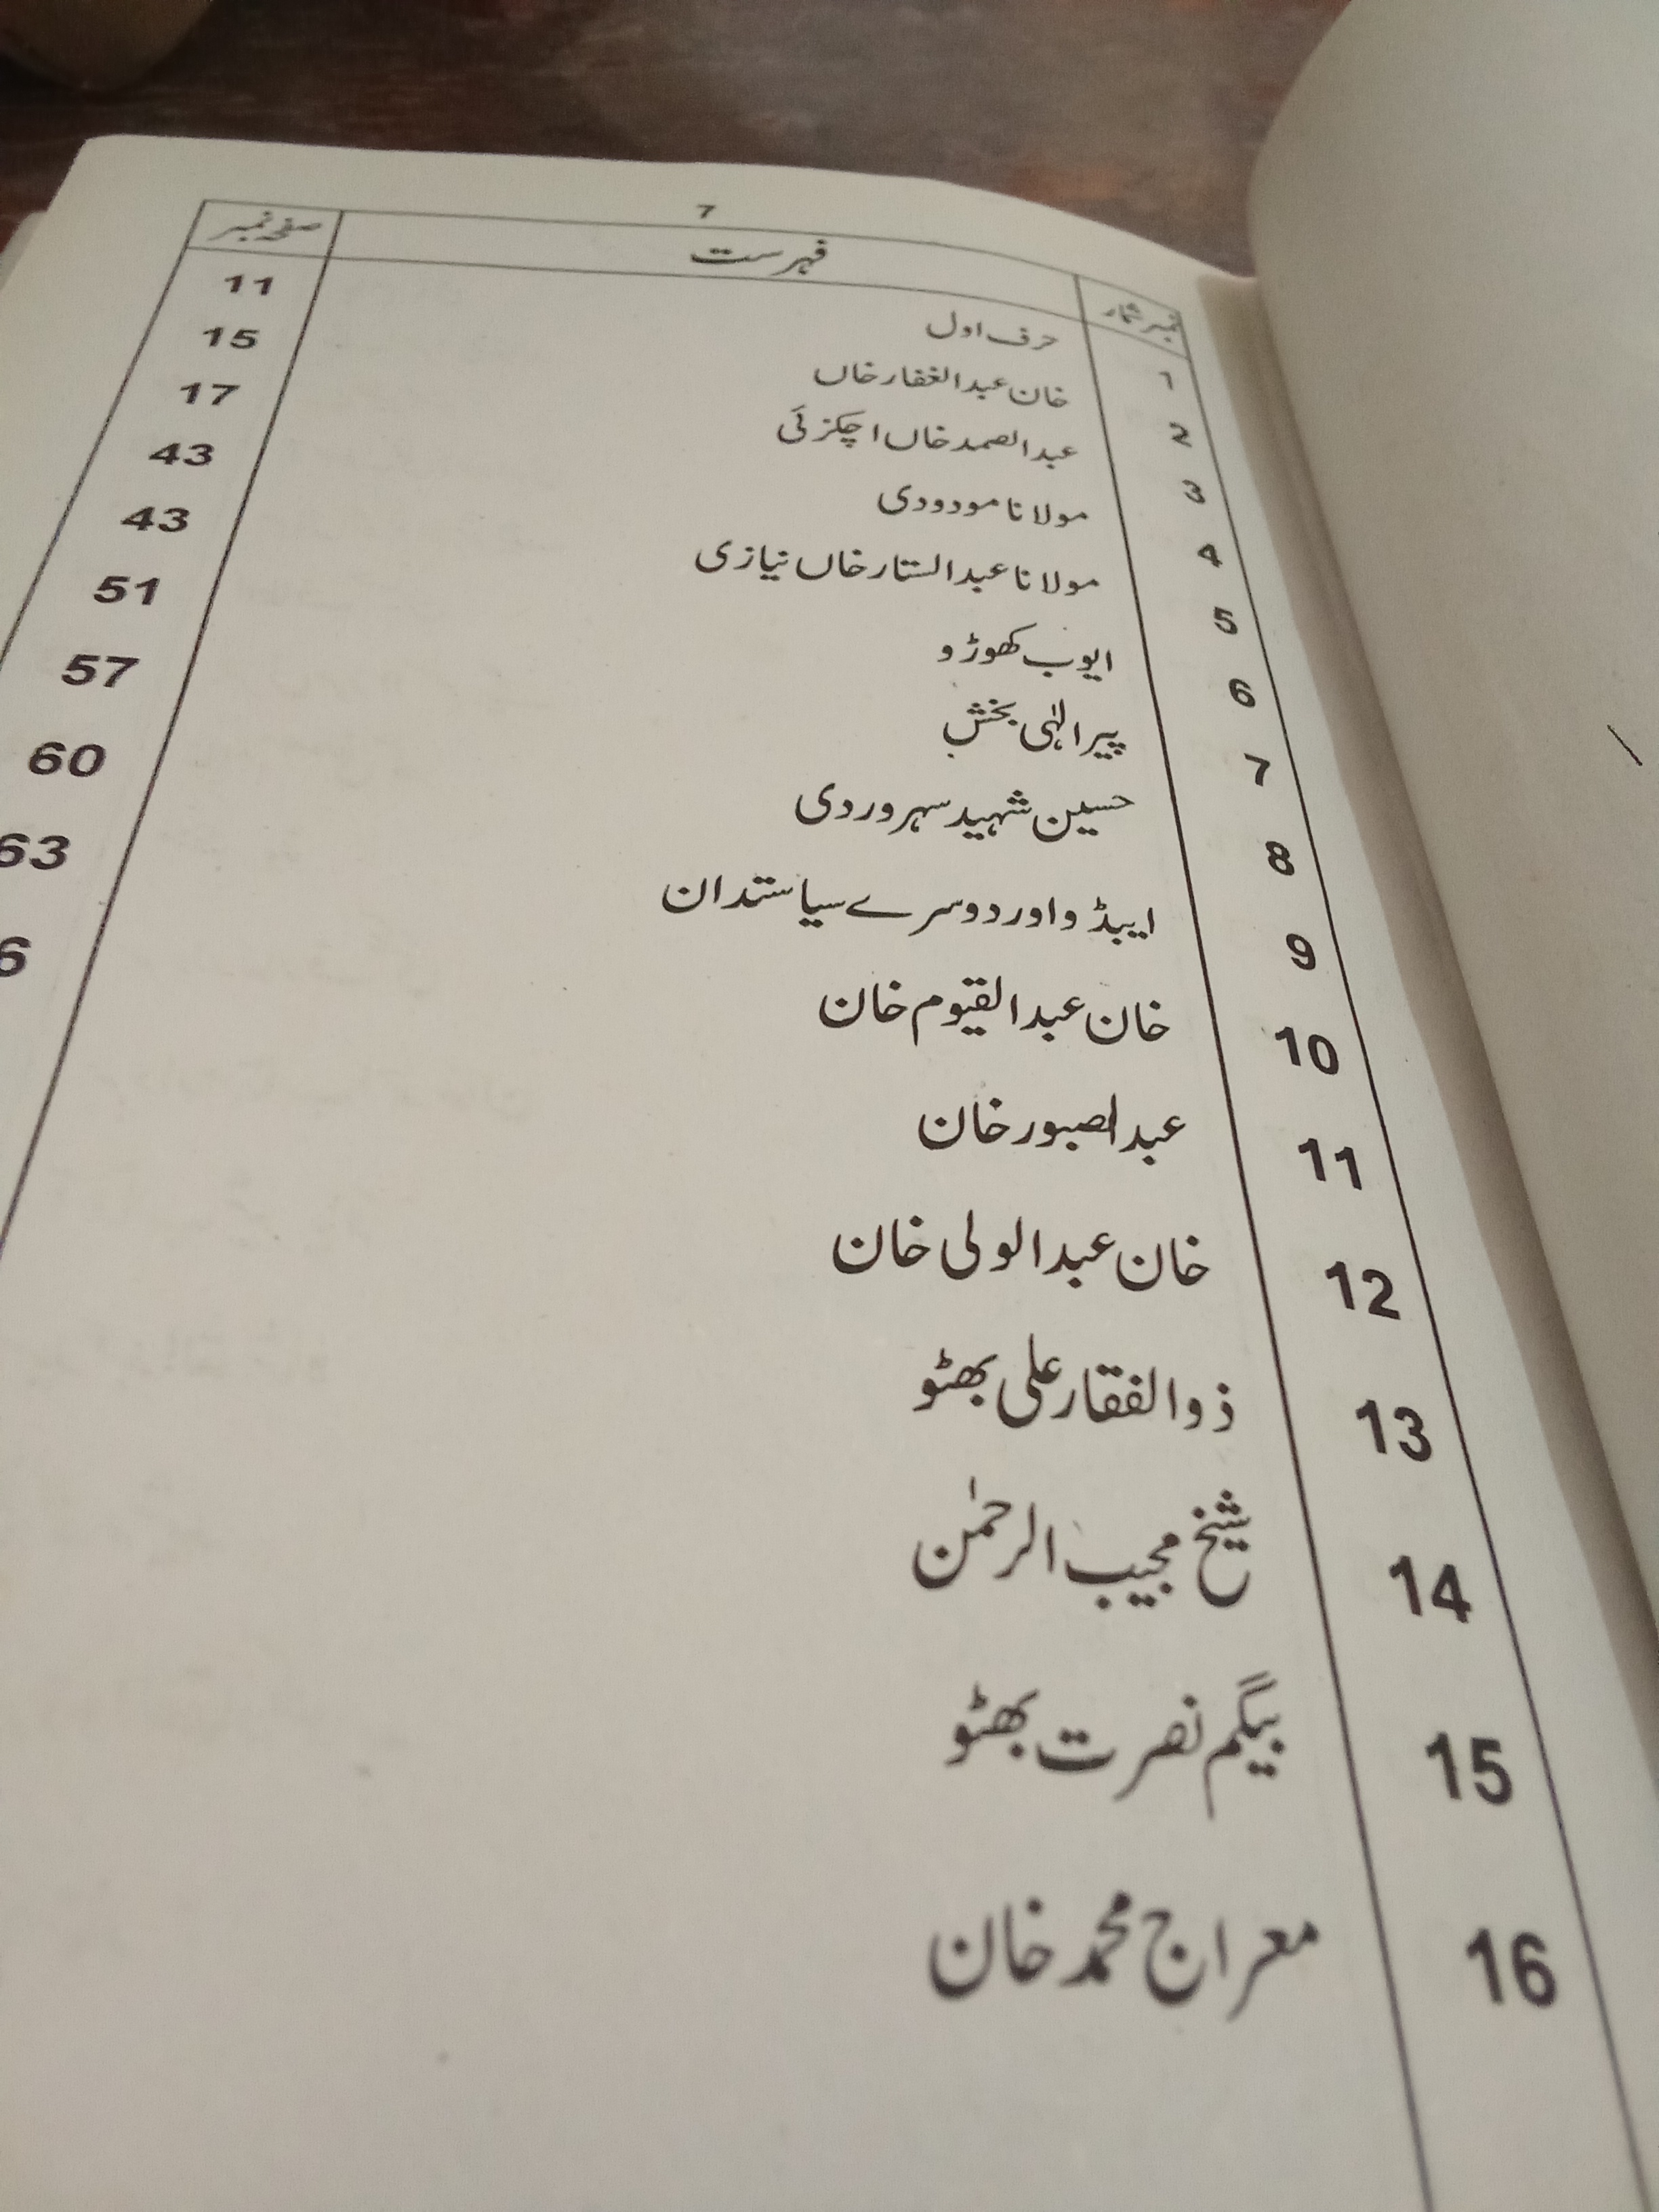 7
نمبر شمار فہرست صفحہ نمبر
1 حرف اول 11
2 خان عبدالغفار خاں 15
3 عبدالصمد خاں اچکزئی 17
4 مولانا مودودی 43
5 مولانا عبدالستار خاں نیازی 43
6 ایوب کھوڑو 51
7 پیر الٰہی بخش 57
8 حسین شہید سہروردی 60
9 ایبڈو اور دوسرے سیاستدان 63
10 خان عبدالقیوم خان
11 عبدالصبور خان
12 خان عبدالولی خان
13 ذوالفقار علی بھٹو
14 شیخ مجیب الرحمٰن
15 بیگم نصرت بھٹو
16 معراج محمد خان